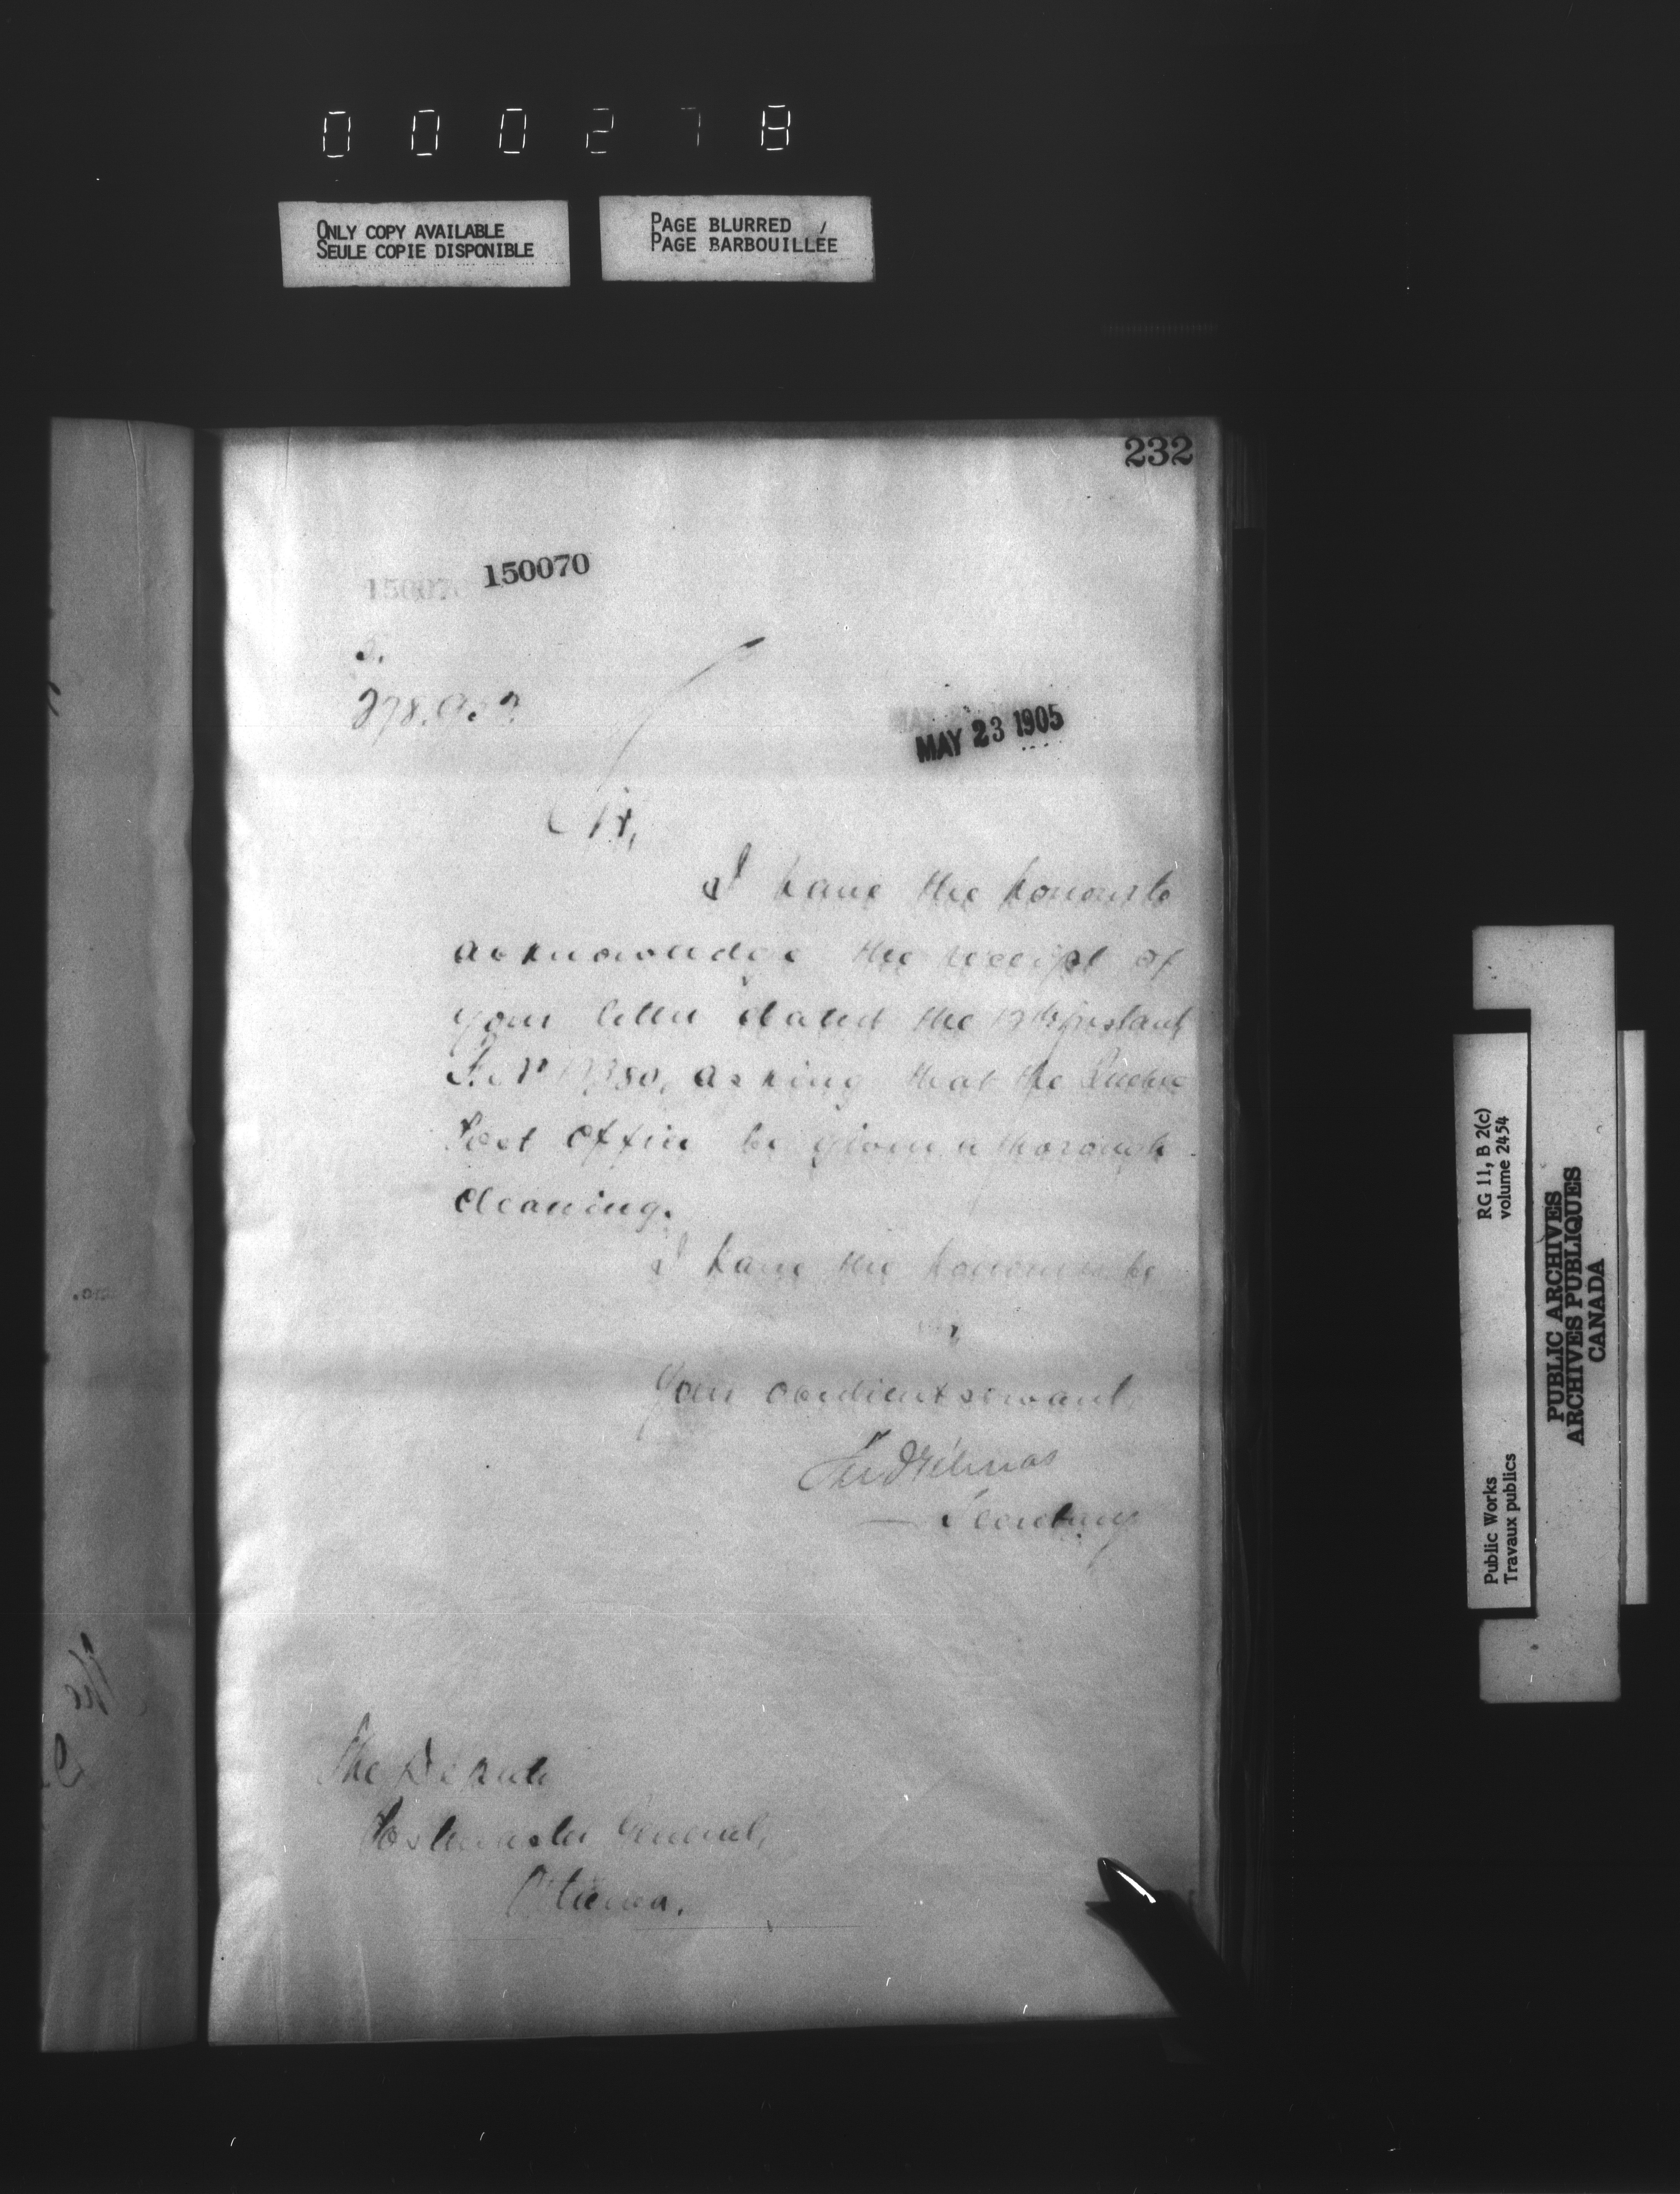 000278
ONLY COPY AVAILABLE
SEULE COPIE DISPONIBLE
PAGE BLURRED
PAGE BARBOUILLÉE
232
150070
MAY 23 1905
Sir,
I have the honour to
acknowledge the receipt of
your letter dated the instant
asking that the Quebec
Post Office be given a thorough
cleaning.
I have the honour to be
Your obedient servant
Secretary
The Deputy
Postmaster General,
Ottawa.
RG 11, B 2(c)
volume 2454
Public Works
Travaux publics
PUBLIC ARCHIVES
ARCHIVES PUBLIQUES
CANADA